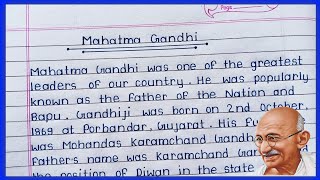 Page
Mahatma Gandhi
Mahatma Gandhi was one of the greatest
leaders of our country. He was popularly
known as the father of the Nation and
Bapu. Gandhiji was born on 2nd October,
1869 at Porbandar, Gujarat. His Fu
was Mohandas Karamchand Gandh
Fathers name was Karamchand Gan
the position of Diwan in the state